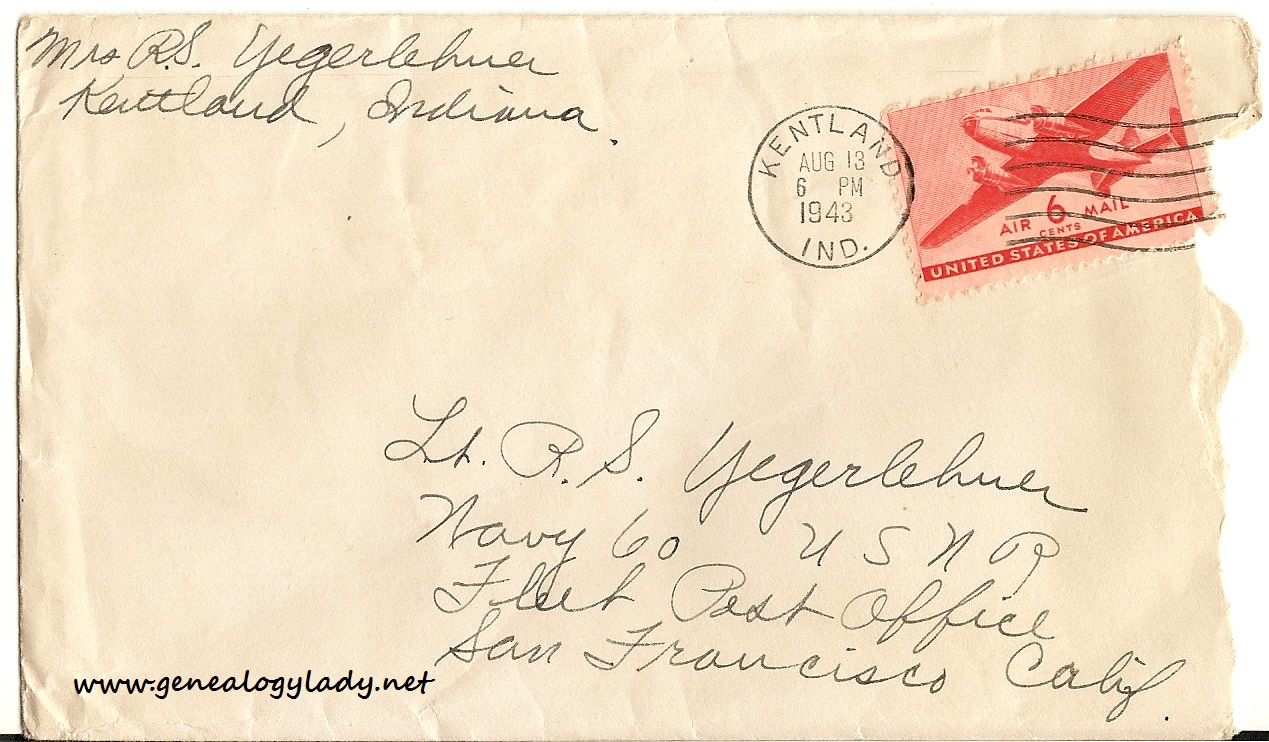 Mrs R.S. Yegerlehner
Kentland, Indiana.
KENTLAND
AUG 13
6 PM
1943
IND.
AIR 6 MAIL
CENTS
UNITED STATES OF AMERICA
Lt. R. S. Yegerlehner
Navy 60 U S N R
Fleet Post Office
San Francisco Calif.
www.genealogylady.net